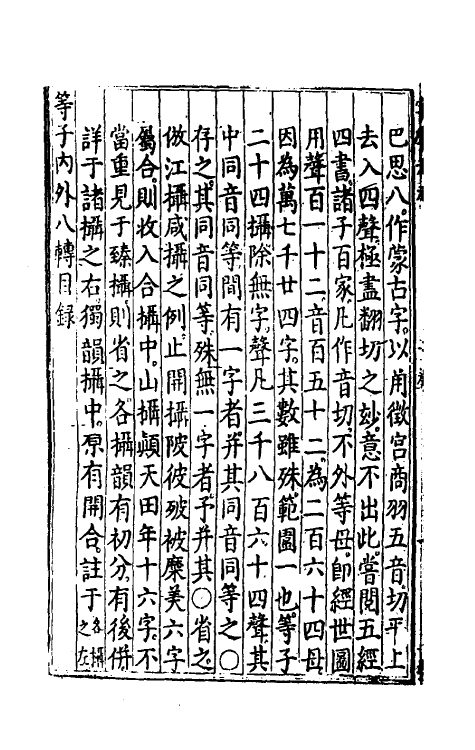 巴思八作蒙古字以角徵宮商羽五音切平上
去入四聲極盡翻切之玅意不出此嘗閱五經
四書諸子百家凡作音切不外等母即經世圖
用聲百一十二音百五十二為二百六十四母
因為萬七千廿四字其數雖殊範圍一也等子
二十四攝除無字聲凡三千八百六十四聲其
中同音同等間有一字者并其同音同等之〇
存之其同音同等殊無一字者予并其〇省之
倣江攝咸攝之例止開攝陂彼㱟被糜美六字
屬合則收入合攝中山攝顛天田年十六字不
當重見于臻攝則省之各攝韻有初分有後併
詳于諸攝之右獨韻攝中原有開合註于各攝之左
等子內外八轉目錄